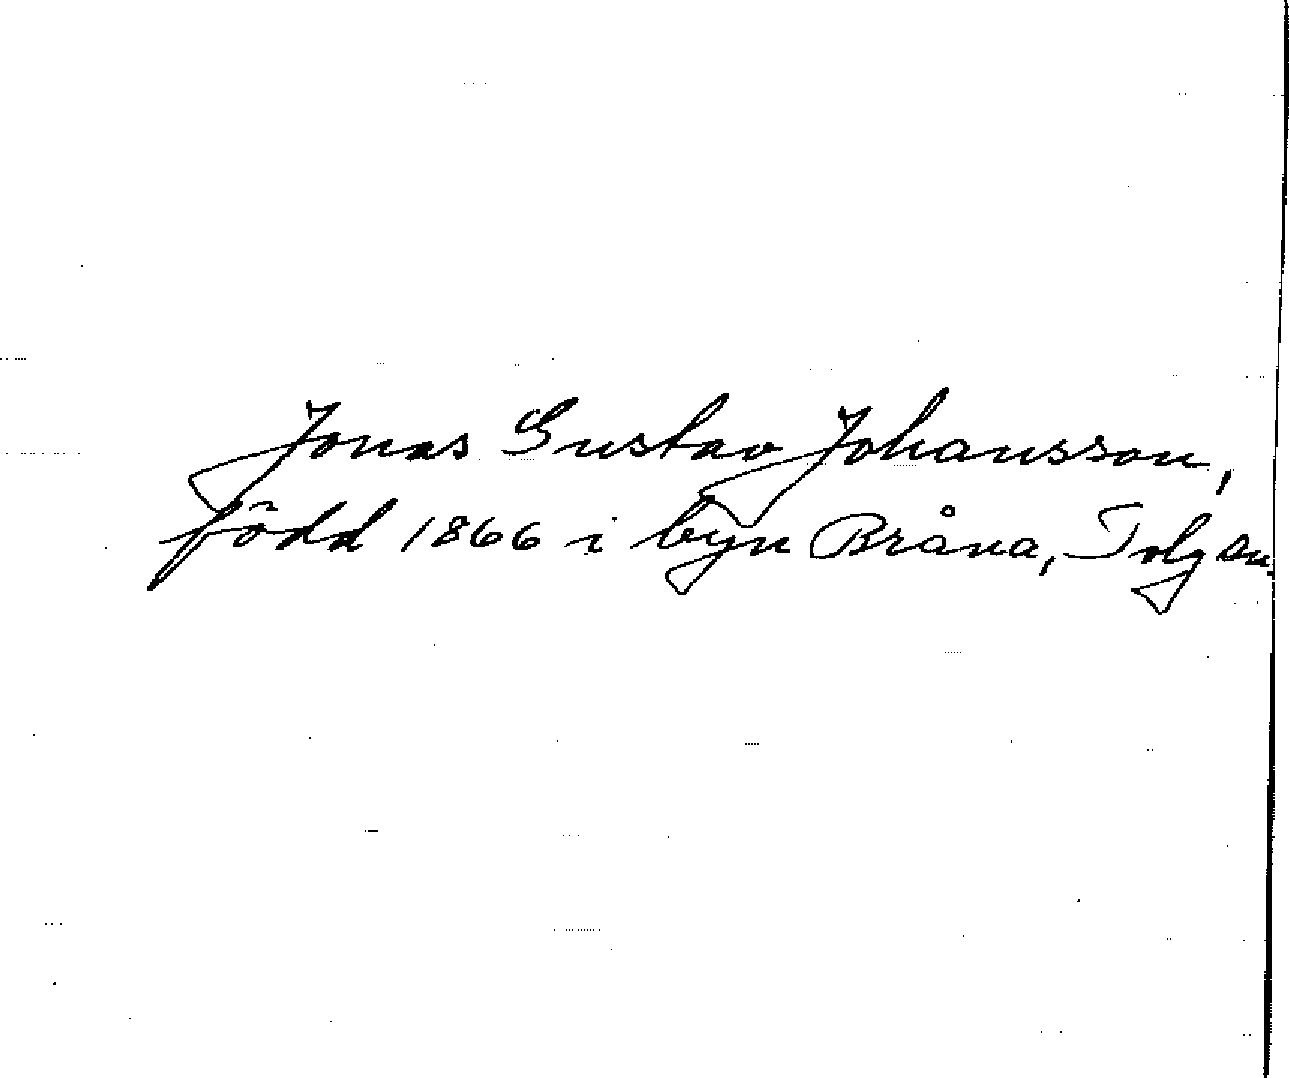 Jonas Gustav Johansson,
född 1866 i byn Bråna, Tolg sn.